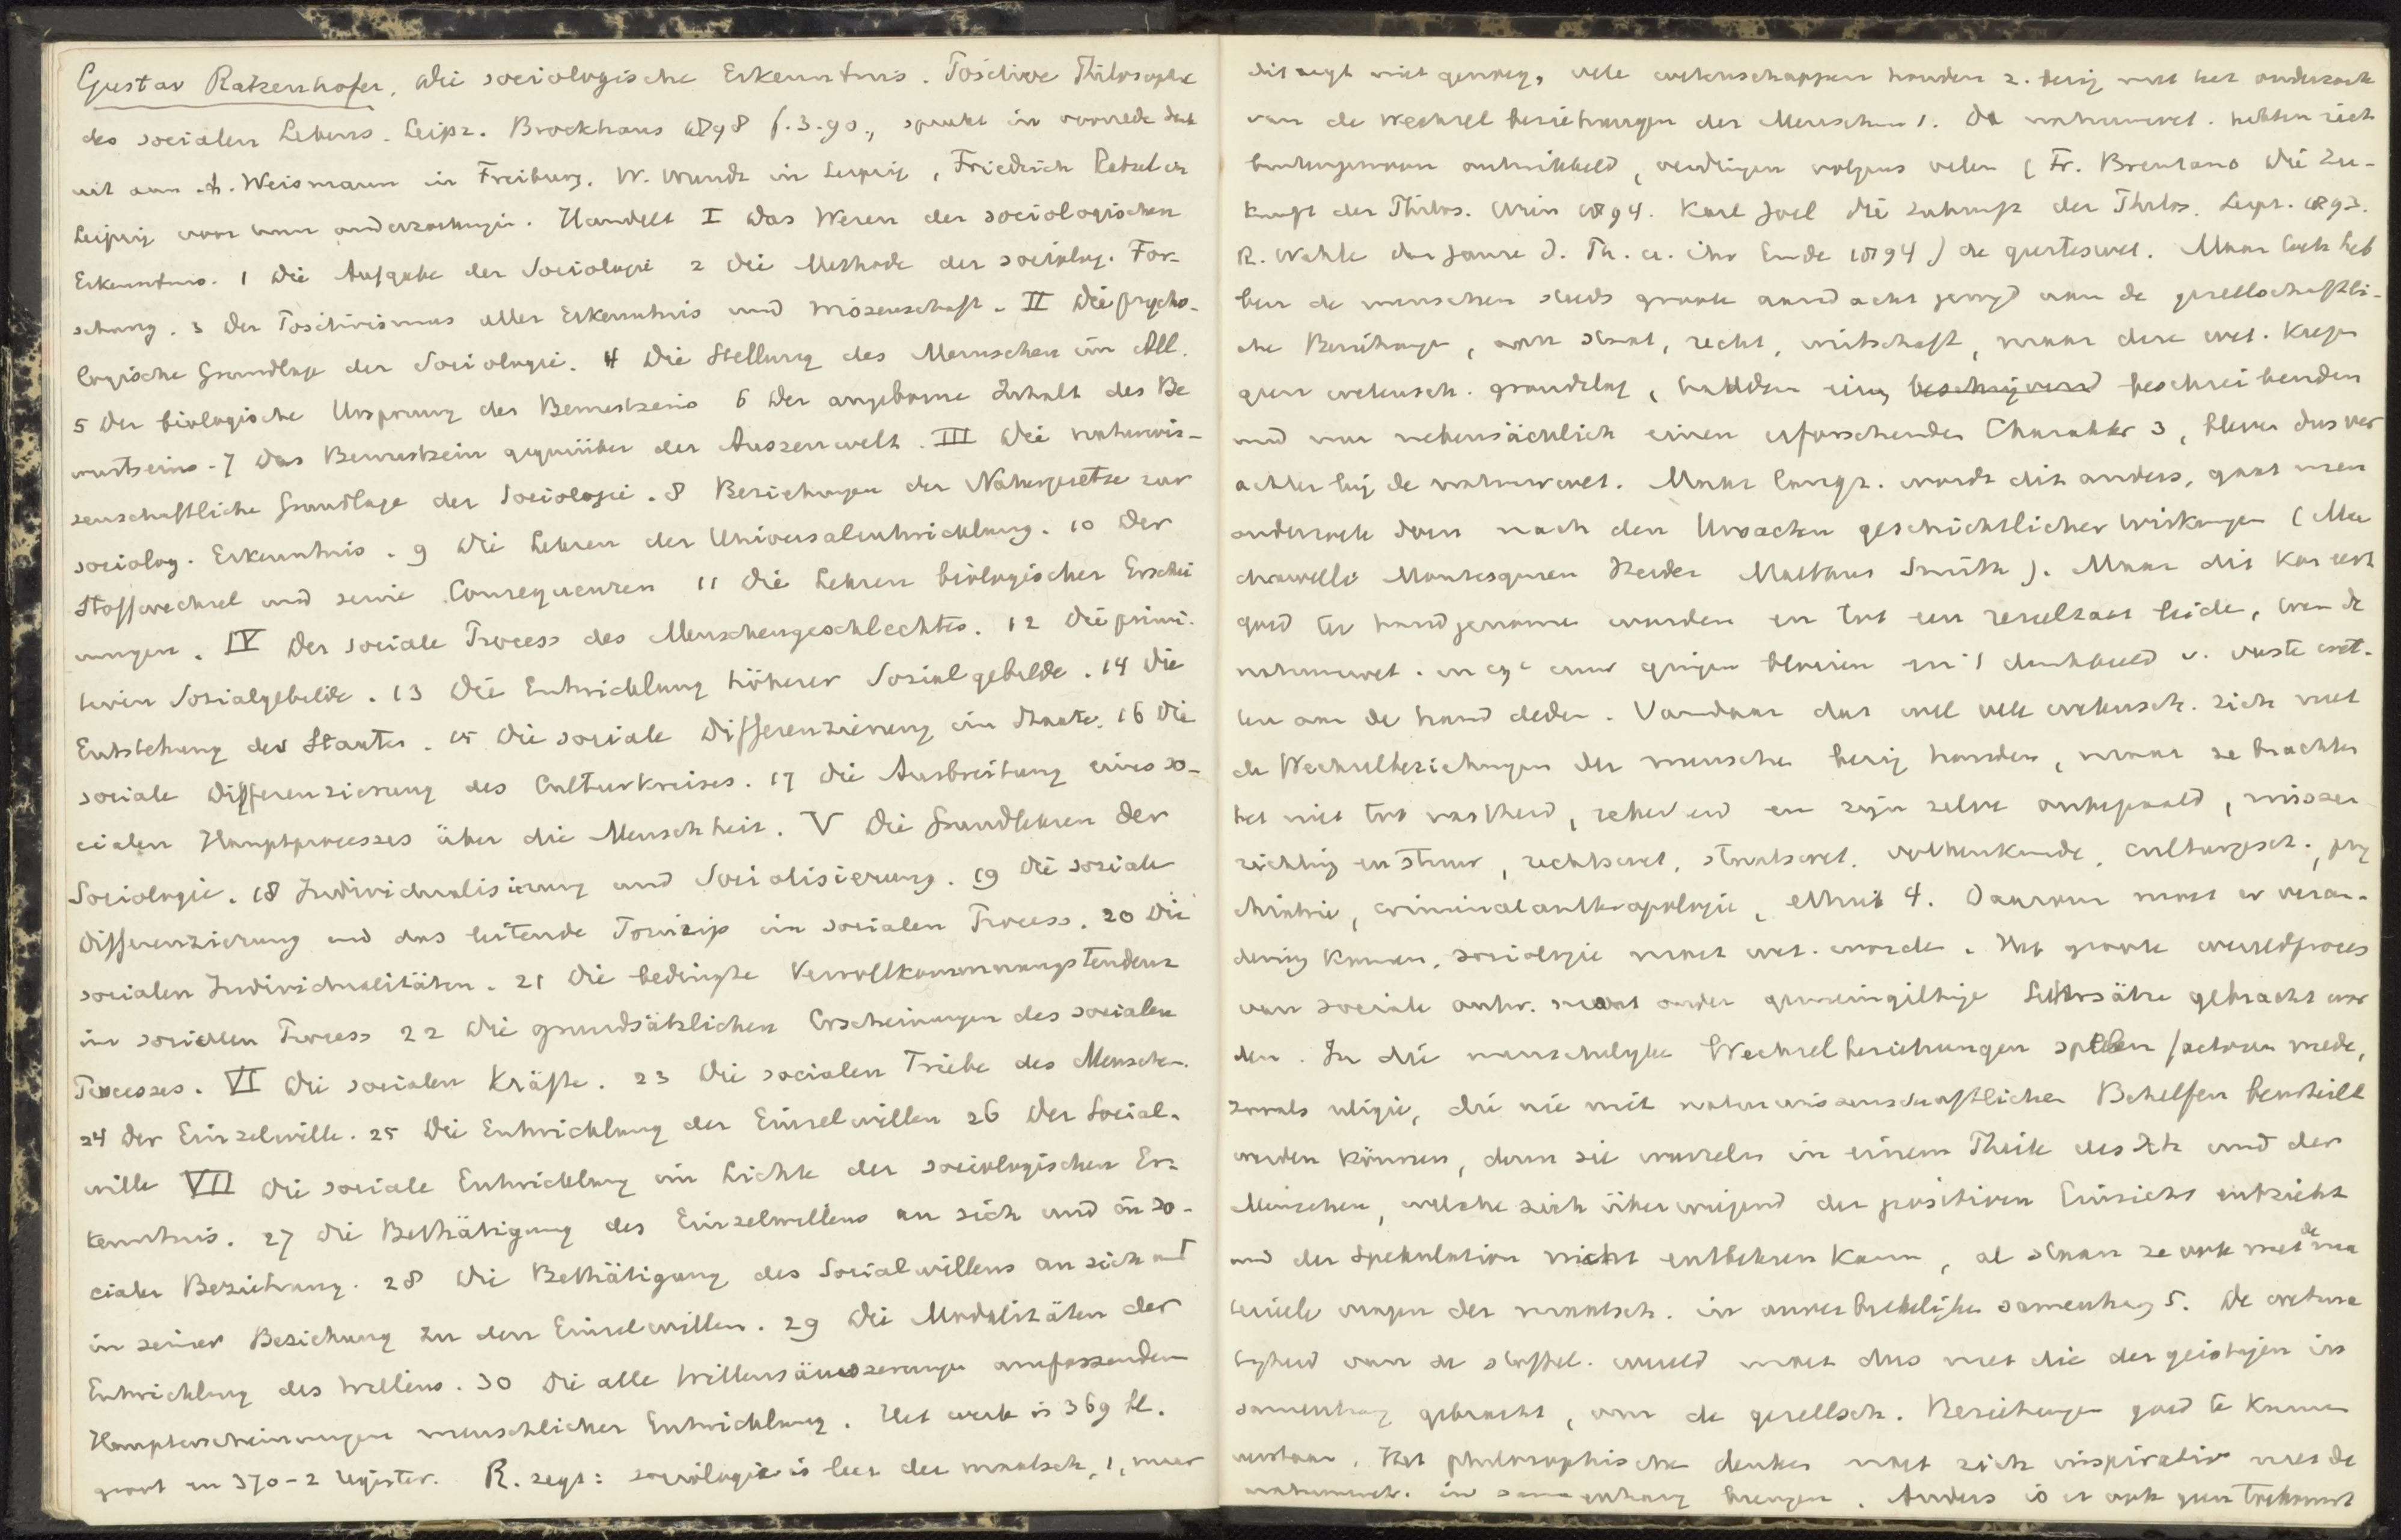 Gustav Ratzenhofer, Die sociologische Erkenntnis. Positive Philosophie
des socialen Lebens. Leipz. Brockhaus 1898 f. 3.90., spreekt in voorrede dank
uit aan A. Weismann in Freiburg, W. Wundt in Leipzig, Friedrich Ratzel in
Leipzig voor hun onderzoekingen. Handelt I Das Wesen der sociologischen
Erkenntnis. 1 Die Aufgabe der Sociologie 2 Die Methode der sociolog. For-
schung. 3 Der Positivismus aller Erkenntnis und Wissenschaft. II Die psycho-
logische Grundlage der Sociologie. 4 Die Stellung des Menschen im All.
5 Der biologische Ursprung des Bewustseins 6 Der angeborne Inhalt des Be
wustseins. 7 Das Bewustsein gegenüber der Auszenwelt. III Die naturwis-
senschaftliche Grundlage der Sociologie. 8 Beziehungen der Naturgesetze zur
sociolog. Erkenntnis. 9 Die Lehren der Universalentwicklung. 10 Der
Stoffwechsel und seine Consequenzen 11 Die Lehren biologischer Erschei
nungen. IV Der sociale Process des Menschengeschlechtes. 12 Die primi-
tiven Sozialgebilde. 13 Die Entwicklung höherer Sozialgebilde. 14 Die
Entstehung des Staates. 15 Die sociale Differenzierung im Staate. 16 Die
sociale Differenzierung des Culturkreises. 17 Die Ausbreitung eines so-
cialen Hauptprocesses über die Menschheit. V Die Grundlehren der
Sociologie. 18 Individualisierung und Socialisierung. 19 Die soziale
Differenzierung und das leitende Prinzip im socialen Process. 20 Die
socialen Individualitäten. 21 Die bedingte Vervollkommnungstendenz
im socialen Process 22 Die grundsätzlichen Erscheinungen des socialen
Processes. VI Die socialen Kräfte. 23 Die socialen Triebe des Menschen.
24 Der Einzelwille. 25 Die Entwicklung der Einzelwillen 26 Der Social-
wille VII Die sociale Entwicklung im Lichte der sociologischen Er-
kenntnis. 27 Die Bethätigung des Einzelwillens an sich und in so-
cialer Beziehung. 28 Die Bethätigung des Socialwillens an sich und
in seiner Beziehung zu den Einzelwillen. 29 Die Modalitäten der
Entwicklung des Willens. 30 Die alle Willensäuszerungen umfassenden
Haupterscheinungen menschlicher Entwicklung. Het werk is 369 bl.
groot en 370-2 register. R. zegt: sociologie is leer der maatsch. 1, maar
dit zegt niet genoeg, vele wetenschappen houden z. bezig met het onderzoek
van de Wechselbeziehungen der Menschen 1. De natuurwet. hebben zich
buitengewoon ontwikkeld, verdringen volgens velen (Fr. Brentano Die Zu-
kunft der Philos. Wien 1894. Karl Joel Die Zukunft der Philos. Leipz. 1893.
R. Wahle das Ganze d. Ph. u. ihr Ende 1894) de geesteswet. Maar toch heb
ben de menschen steeds groote aandacht gewijd aan de gesellschaftli-
che Beziehungen, aan staat, recht, wirtschaft, maar deze wet. kregen
geen wetensch. grondslag, hadden een beschrijvend beschreibenden
und nur nebensächlich einen erforschenden Charakter 3, bleven dus ver
achter bij de natuurwet. Maar langz. wordt dit anders, gaat men
onderzoek doen nach den Ursachen geschichtlicher Wirkungen (Mac
chiavelli Montesquieu Herder Malthus Smith). Maar dit kon eerst
goed ter hand genomen worden en tot een resultaat leiden, toen de
natuurwet. in 19e eeuw gingen bloeien en 'n denkbeeld v. vaste wet-
ten aan de hand deden. Vandaar dat wel vele wetensch. zich met
de Wechselbeziehungen der menschen bezig houden, maar ze brachten
het niet tot vastheid, zekerheid en zijn zelve onbepaald, missen
richting en stuur, rechtswet, staatswet. volkenkunde, cultuurgesch., psy
chiatrie, criminalanthropologie, ethiek 4. Daarom moet er veran-
dering komen, sociologie moet wet. worden. Het groote wereldproces
van sociale ontw. moet onder gemeingiltige Lehrsätze gebracht wor
den. In die menschelijke Wechselbeziehungen spelen factoren mede,
zooals religie, die nie mit naturwissenschaftlichen Behelfen beurteilt
werden können, denn sie wurzeln in einem Theile des Ich und der
Menschen, welche sich überwiegend der positiven Einsicht entzieht
und der Spekulation nicht entbehren kann, al staan ze ook met de ma
terieele vragen der maatsch. in onverbrekelijken samenhang 5. De wetma
tigheid van de stoffel. wereld moet dus met die der geistigen in
samenhang gebracht, om de gesellsch. Beziehungen goed te kunnen
verstaan. Het philosophische denken moet zich inspirativ met de
natuurwet. in samenhang brengen. Anders is er ook geen toekomst